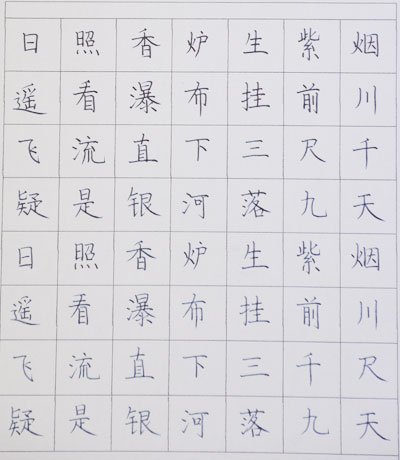 日照香炉生紫烟
遥看瀑布挂前川
飞流直下三尺千
疑是银河落九天
日照香炉生紫烟
遥看瀑布挂前川
飞流直下三千尺
疑是银河落九天